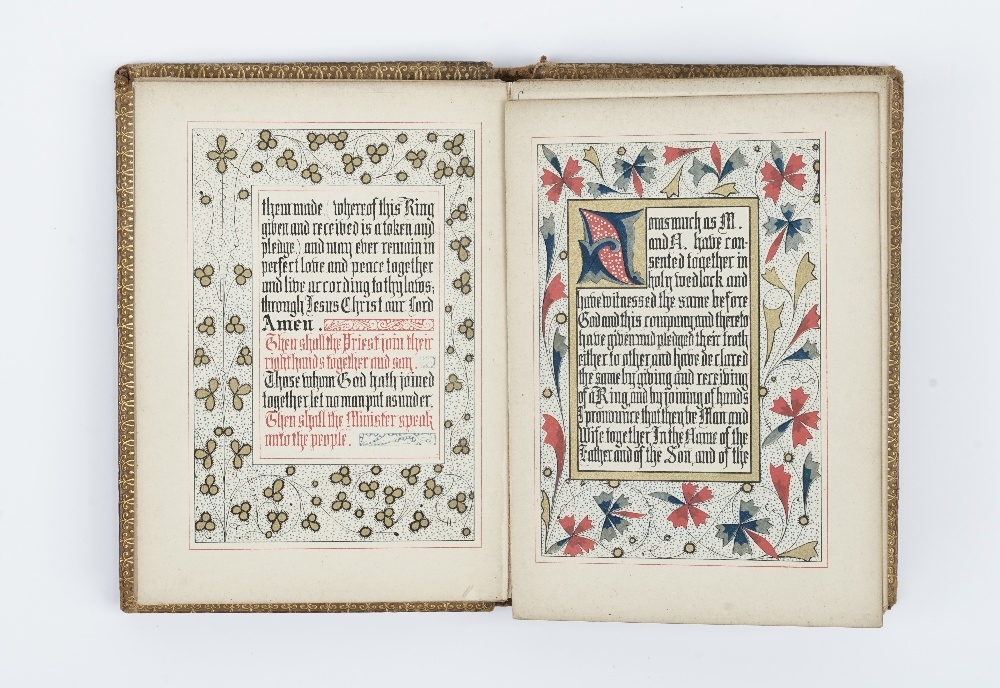 them made (whereof this Ring
given and received is a token and
pledge) and may ever remain in
perfect love and peace together
and live according to thy laws;
through Jesus Christ our Lord
Amen.
Then shall the Priest join their
right hands together and say.
Those whom God hath joined
together let no man put asunder.
Then shall the Minister speak
unto the people.
Forasmuch as M.
and N. have con-
sented together in
holy wedlock and
have witnessed the same before
God and this company, and thereto
have given and pledged their troth
either to other, and have declared
the same by giving and receiving
of a Ring, and by joining of hands
I pronounce that they be Man and
Wife together In the Name of the
Father and of the Son, and of the